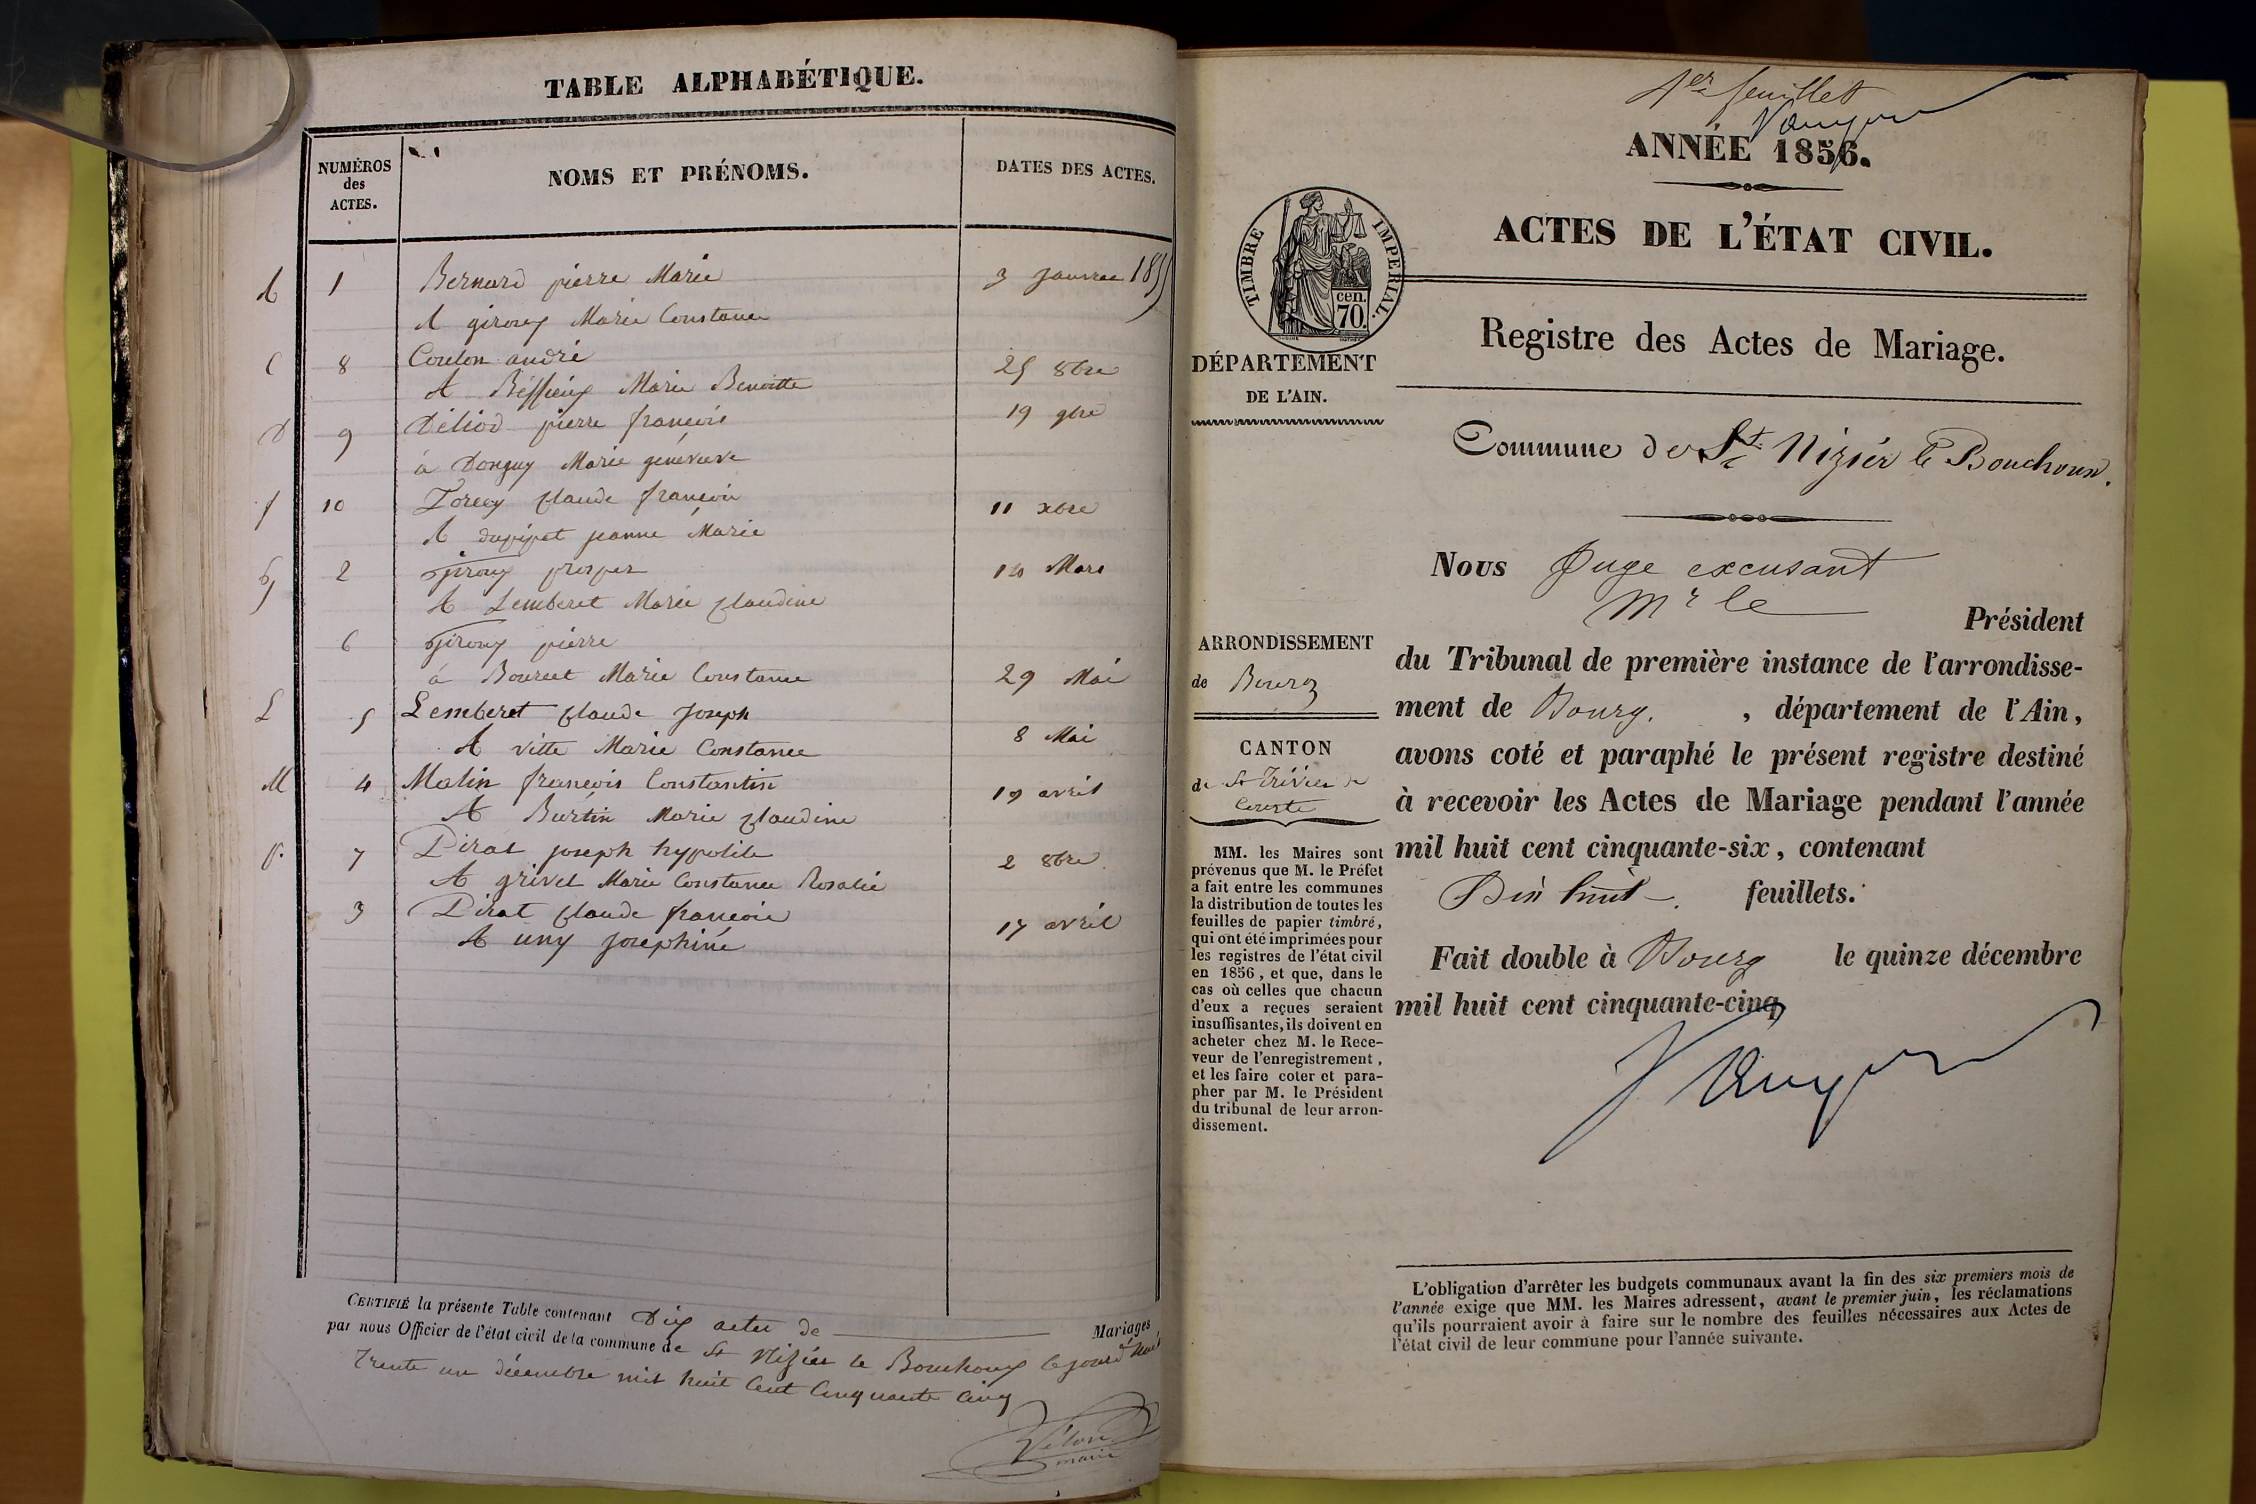 TABLE ALPHABÉTIQUE.
NUMÉROS des ACTES.
NOMS ET PRÉNOMS.
DATES DES ACTES.
1 Bernard pierre Marie 3 Janvier 1855
A giroux Marie Constance
C 8 Coulon andré 25 8bre
A Marie Benoitte
D 9 Déliod pierre françois 19 9bre
à Donguy Marie genevieve
f 10 claude françois 11 xbre
A dupipet jeanne Marie
G 2 Giroux prosper Mars
A Lemberet Marie claudine
6 Giroux pierre
à Bourcet Marie Constance 29 Mai
L 5 Lemberet claude Joseph
A vitte Marie Constance 8 Mai
M 4 Malin françois Constantin
A Burtin Marie claudine 19 avril
P. 7 Pirat joseph hypolite
A grivet Marie Constance Rosalie 2 8bre
3 Pirat claude françois
A uny Josephine 17 avril
CERTIFIÉ la présente Table contenant Dix actes de Mariages
par nous Officier de l'état civil de la commune de St Nizier le Bouchoux
trente un décembre mil huit Cent Cinquante Cinq
maire
1er feuillet
ANNÉE 1856.
ACTES DE L'ÉTAT CIVIL.
TIMBRE IMPÉRIAL.
cen.
70.
Registre des Actes de Mariage.
DÉPARTEMENT
DE L'AIN.
Commune de St Nizier le Bouchoux.
Nous Juge excusant
Mr le
Président
du Tribunal de première instance de l'arrondisse-
ment de Bourg. , département de l'Ain,
avons coté et paraphé le présent registre destiné
à recevoir les Actes de Mariage pendant l'année
mil huit cent cinquante-six, contenant
Dix huit feuillets.
Fait double à Bourg le quinze décembre
mil huit cent cinquante-cinq
ARRONDISSEMENT
de Bourg
CANTON
de St Trivier de
Courte
MM. les Maires sont
prévenus que M. le Préfet
a fait entre les communes
la distribution de toutes les
feuilles de papier timbré,
qui ont été imprimées pour
les registres de l'état civil
en 1856, et que, dans le
cas où celles que chacun
d'eux a reçues seraient
insuffisantes, ils doivent en
acheter chez M. le Rece-
veur de l'enregistrement,
et les faire coter et para-
pher par M. le Président
du tribunal de leur arron-
dissement.
L'obligation d'arrêter les budgets communaux avant la fin des six premiers mois de
l'année exige que MM. les Maires adressent, avant le premier juin, les réclamations
qu'ils pourraient avoir à faire sur le nombre des feuilles nécessaires aux Actes de
l'état civil de leur commune pour l'année suivante.